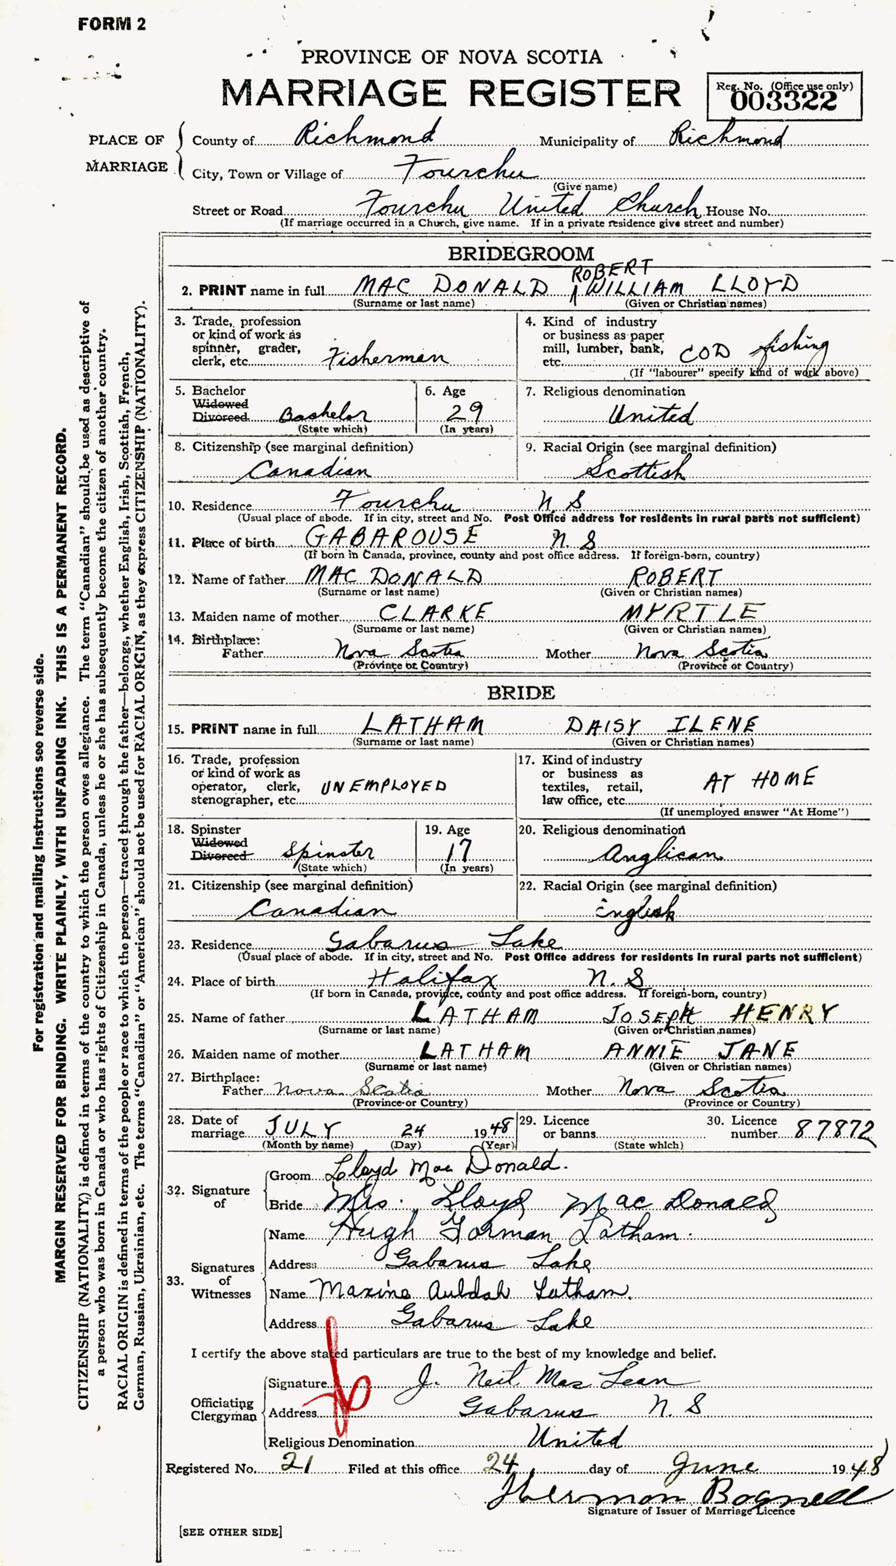 FORM 2
PROVINCE OF NOVA SCOTIA
MARRIAGE REGISTER
Reg. No. (Office use only)
003322
PLACE OF MARRIAGE
County of Richmond Municipality of Richmond
City, Town or Village of Fourchu
(Give name)
Street or Road Fourchu United Church House No.
(If marriage occurred in a Church, give name. If in a private residence give street and number)
BRIDEGROOM
ROBERT
2. PRINT name in full MAC DONALD WILLIAM LLOYD
(Surname or last name) (Given or Christian names)
3. Trade, profession or kind of work as spinner, grader, clerk, etc. Fisherman
4. Kind of industry or business as paper mill, lumber, bank, etc. COD fishing
(If "labourer" specify kind of work above)
5. Bachelor Widowed Divorced Bachelor
(State which)
6. Age 29
(In years)
7. Religious denomination
United
8. Citizenship (see marginal definition)
Canadian
9. Racial Origin (see marginal definition)
Scottish
10. Residence Fourchu N S
(Usual place of abode. If in city, street and No. Post Office address for residents in rural parts not sufficient)
11. Place of birth GABAROUSE N S
(If born in Canada, province, county and post office address. If foreign-born, country)
12. Name of father MAC DONALD ROBERT
(Surname or last name) (Given or Christian names)
13. Maiden name of mother CLARKE MYRTLE
(Surname or last name) (Given or Christian names)
14. Birthplace:
Father Nova Scotia Mother Nova Scotia
(Province or Country) (Province or Country)
BRIDE
15. PRINT name in full LATHAM DAISY ILENE
(Surname or last name) (Given or Christian names)
16. Trade, profession or kind of work as operator, clerk, stenographer, etc. UNEMPLOYED
17. Kind of industry or business as textiles, retail, law office, etc. AT HOME
(If unemployed answer "At Home")
18. Spinster Widowed Divorced Spinster
(State which)
19. Age 17
(In years)
20. Religious denomination
Anglican
21. Citizenship (see marginal definition)
Canadian
22. Racial Origin (see marginal definition)
English
23. Residence Gabarus Lake
(Usual place of abode. If in city, street and No. Post Office address for residents in rural parts not sufficient)
24. Place of birth Halifax N. S
(If born in Canada, province, county and post office address. If foreign-born, country)
25. Name of father LATHAM JOSEPH HENRY
(Surname or last name) (Given or Christian names)
26. Maiden name of mother LATHAM ANNIE JANE
(Surname or last name) (Given or Christian names)
27. Birthplace:
Father Nova Scotia Mother Nova Scotia
(Province or Country) (Province or Country)
28. Date of marriage JULY 24 1948
(Month by name) (Day) (Year)
29. Licence or banns
(State which)
30. Licence number 87872
32. Signature of
Groom Lloyd Mac Donald.
Bride Mrs. Lloyd Mac Donald
33. Signatures of Witnesses
Name Hugh Gorman Latham.
Address Gabarus Lake
Name Maxine Auldah Latham.
Address Gabarus Lake
I certify the above stated particulars are true to the best of my knowledge and belief.
Officiating Clergyman
Signature J. Neil MacLean
Address Gabarus N. S
Religious Denomination United
Registered No. 21 Filed at this office 24 day of June 1948
Herman Bagnell
Signature of Issuer of Marriage Licence
[SEE OTHER SIDE]
For registration and mailing instructions see reverse side.
MARGIN RESERVED FOR BINDING. WRITE PLAINLY, WITH UNFADING INK. THIS IS A PERMANENT RECORD.
CITIZENSHIP (NATIONALITY) is defined in terms of the country to which the person owes allegiance. The term "Canadian" should be used as descriptive of
a person who was born in Canada or who has rights of Citizenship in Canada, unless he or she has subsequently become the citizen of another country.
RACIAL ORIGIN is defined in terms of the people or race to which the person—traced through the father—belongs, whether English, Irish, Scottish, French,
German, Russian, Ukrainian, etc. The terms "Canadian" or "American" should not be used for RACIAL ORIGIN, as they express CITIZENSHIP (NATIONALITY).